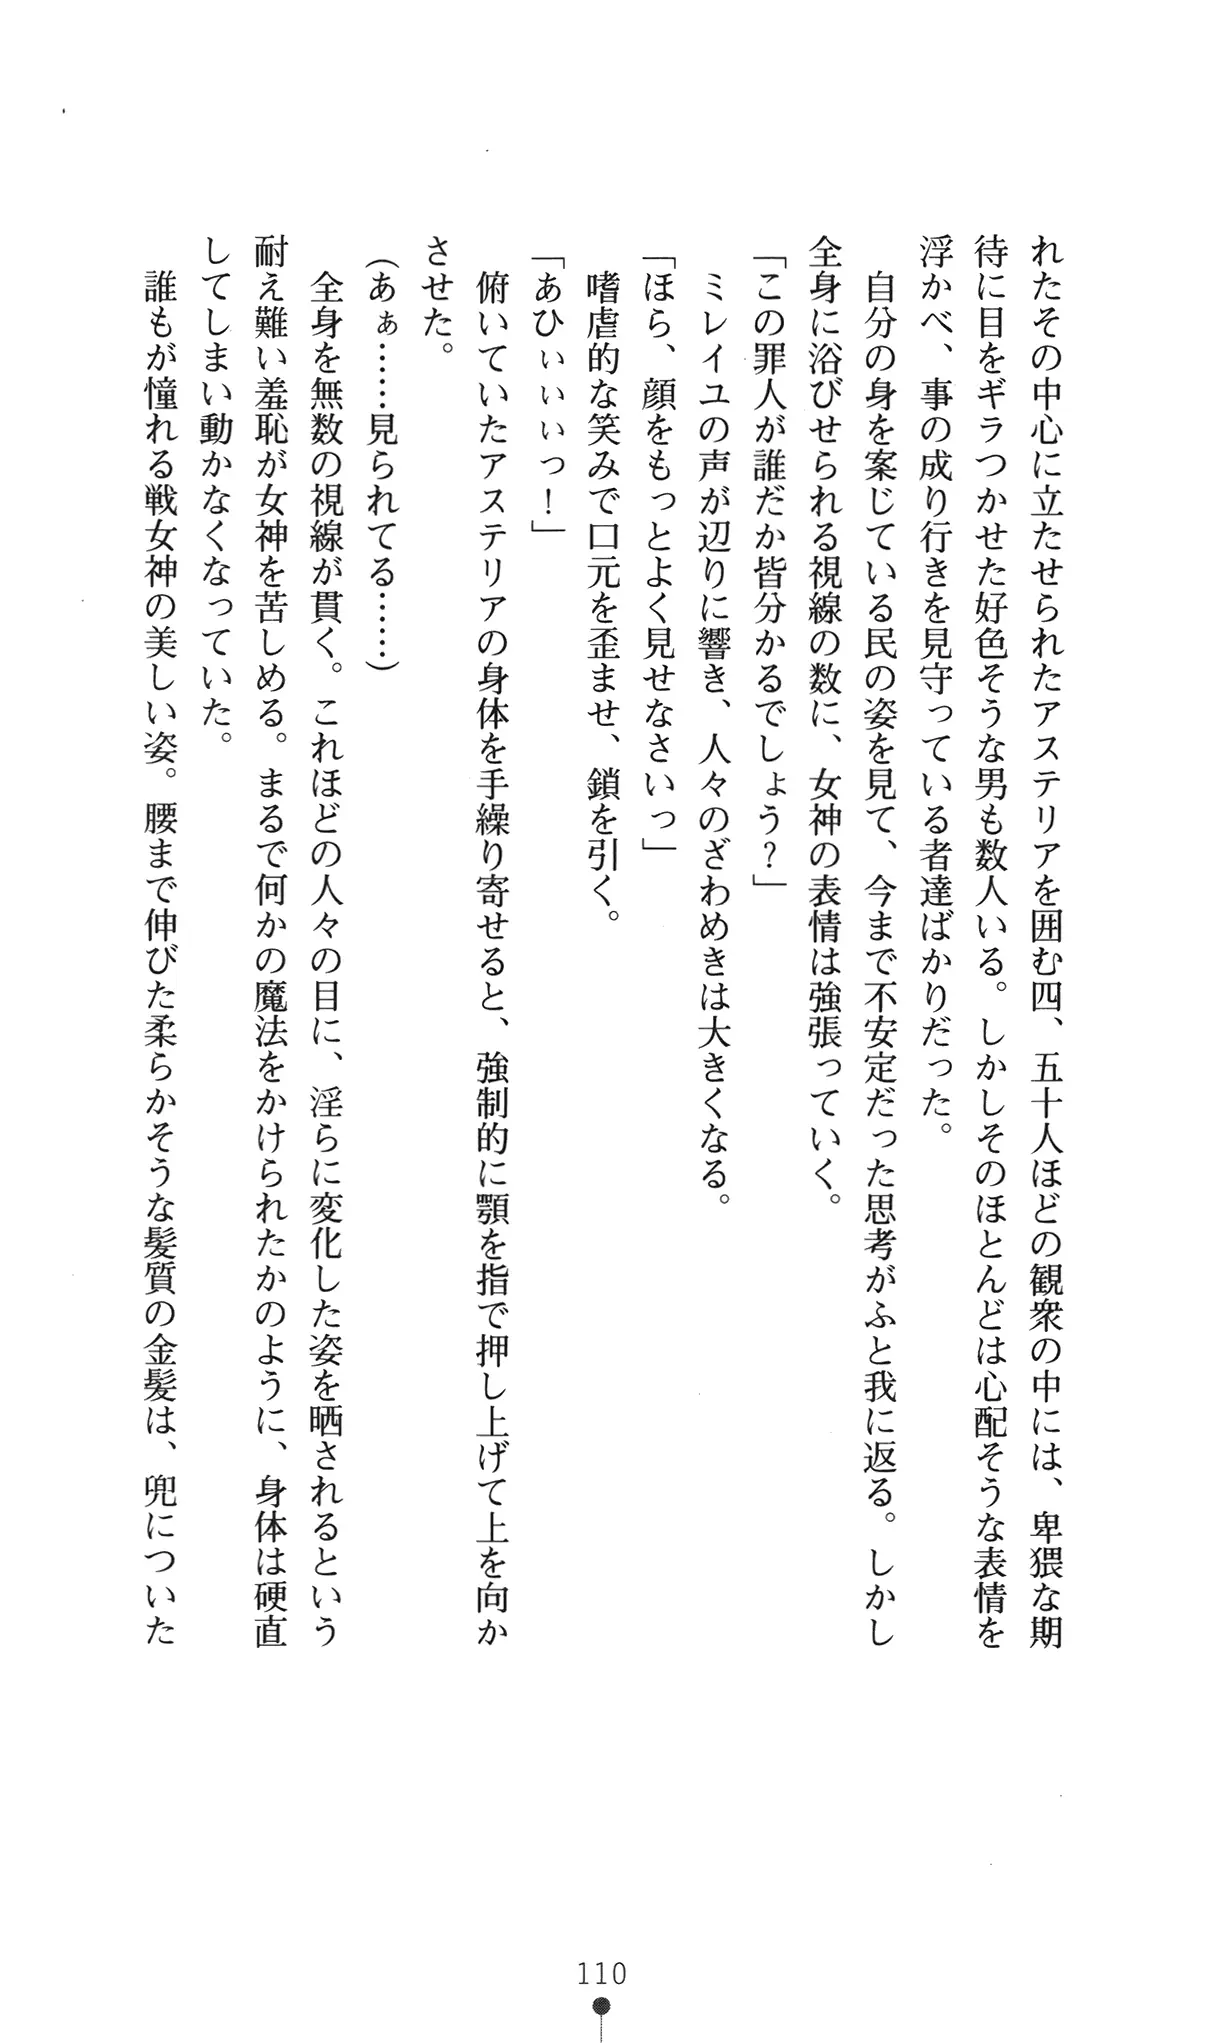 れたその中心に立たせられたアステリアを囲む四、五十人ほどの観衆の中には、卑猥な期
待に目をギラつかせた好色そうな男も数人いる。しかしそのほとんどは心配そうな表情を
浮かべ、事の成り行きを見守っている者達ばかりだった。
　自分の身を案じている民の姿を見て、今まで不安定だった思考がふと我に返る。しかし
全身に浴びせられる視線の数に、女神の表情は強張っていく。
「この罪人が誰だか皆分かるでしょう？」
　ミレイユの声が辺りに響き、人々のざわめきは大きくなる。
「ほら、顔をもっとよく見せなさいっ」
　嗜虐的な笑みで口元を歪ませ、鎖を引く。
「あひぃぃぃっ！」
　俯いていたアステリアの身体を手繰り寄せると、強制的に顎を指で押し上げて上を向か
させた。
（あぁ……見られてる……）
　全身を無数の視線が貫く。これほどの人々の目に、淫らに変化した姿を晒されるという
耐え難い羞恥が女神を苦しめる。まるで何かの魔法をかけられたかのように、身体は硬直
してしまい動かなくなっていた。
　誰もが憧れる戦女神の美しい姿。腰まで伸びた柔らかそうな髪質の金髪は、兜についた
110